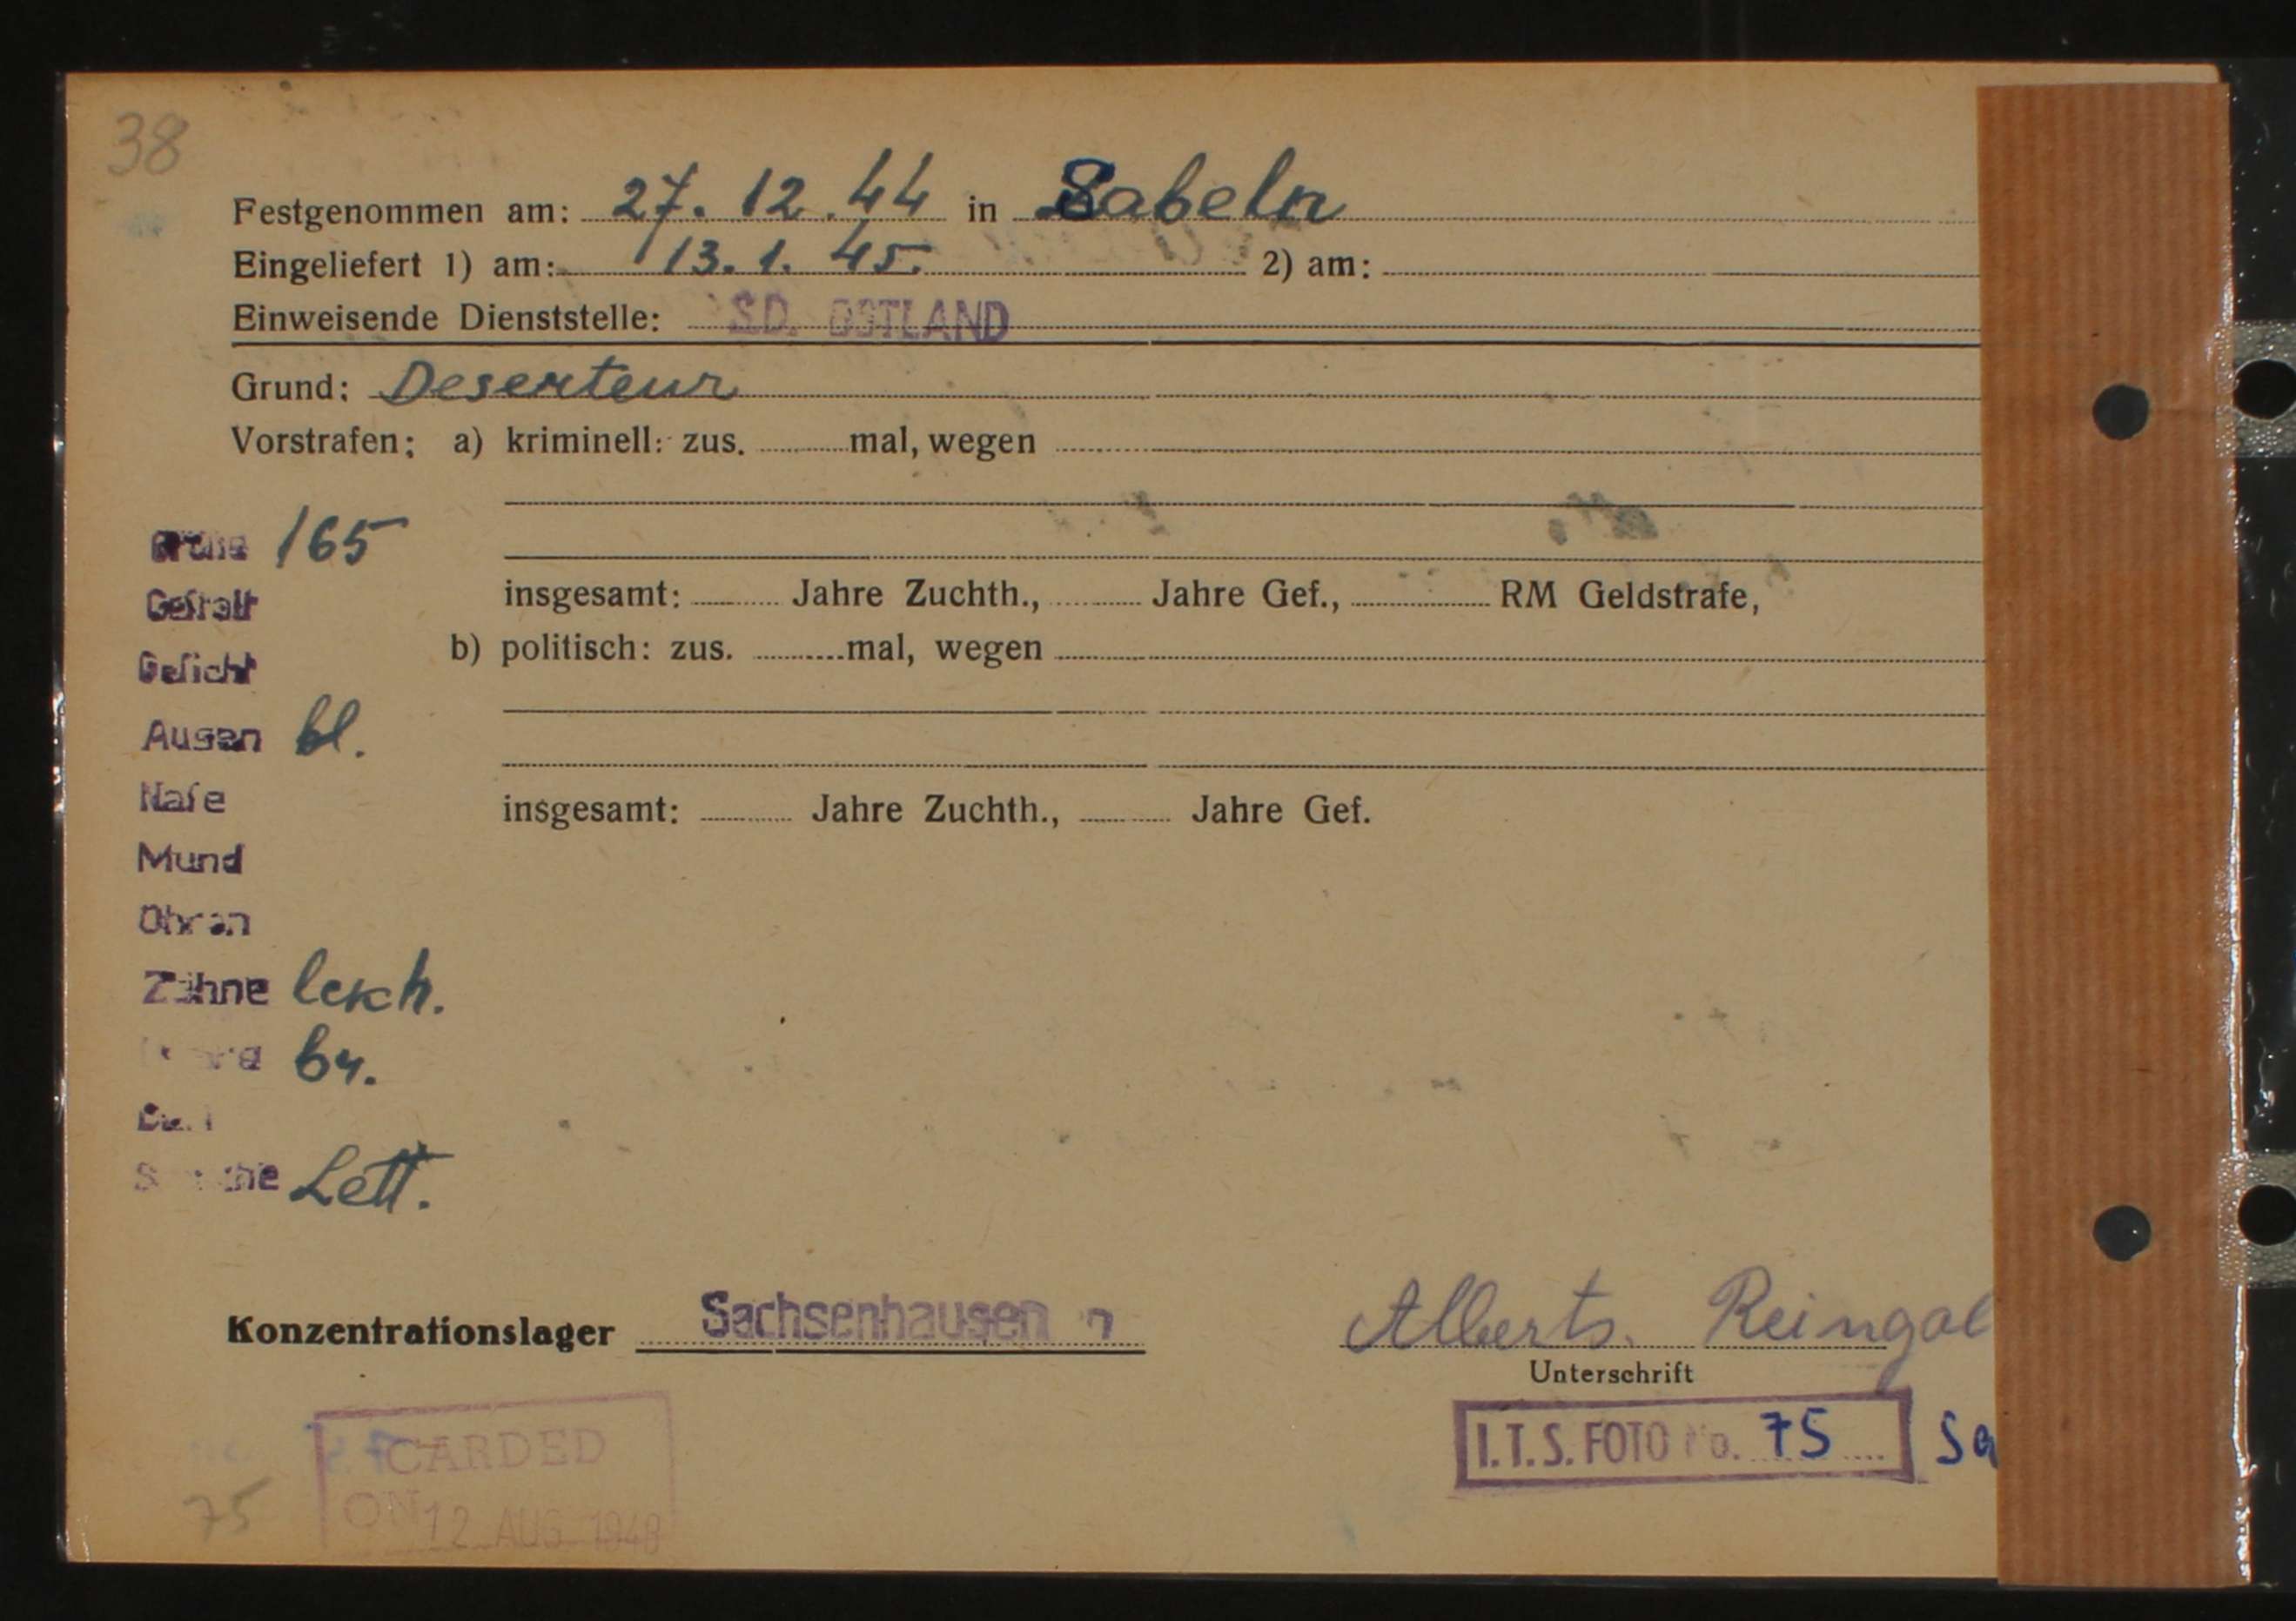 38
Festgenommen am: 27. 12. 44 in Sabeln
Eingeliefert 1) am: 13. 1. 45. 2) am:
Einweisende Dienststelle: S.D. OSTLAND
Grund: Deserteur
Vorstrafen: a) kriminell: zus. mal, wegen
Größe 165
Gestalt insgesamt: Jahre Zuchth., Jahre Gef., RM Geldstrafe,
Gesicht b) politisch: zus. mal, wegen
Augen bl.
Nase insgesamt: Jahre Zuchth., Jahre Gef.
Mund
Ohren
Zähne
br.
Sprache Lett.
Konzentrationslager Sachsenhausen Alberts. Reingol
Unterschrift
I.T.S. FOTO No. 75 Sa
CARDED
75 ON 12 AUG 1948